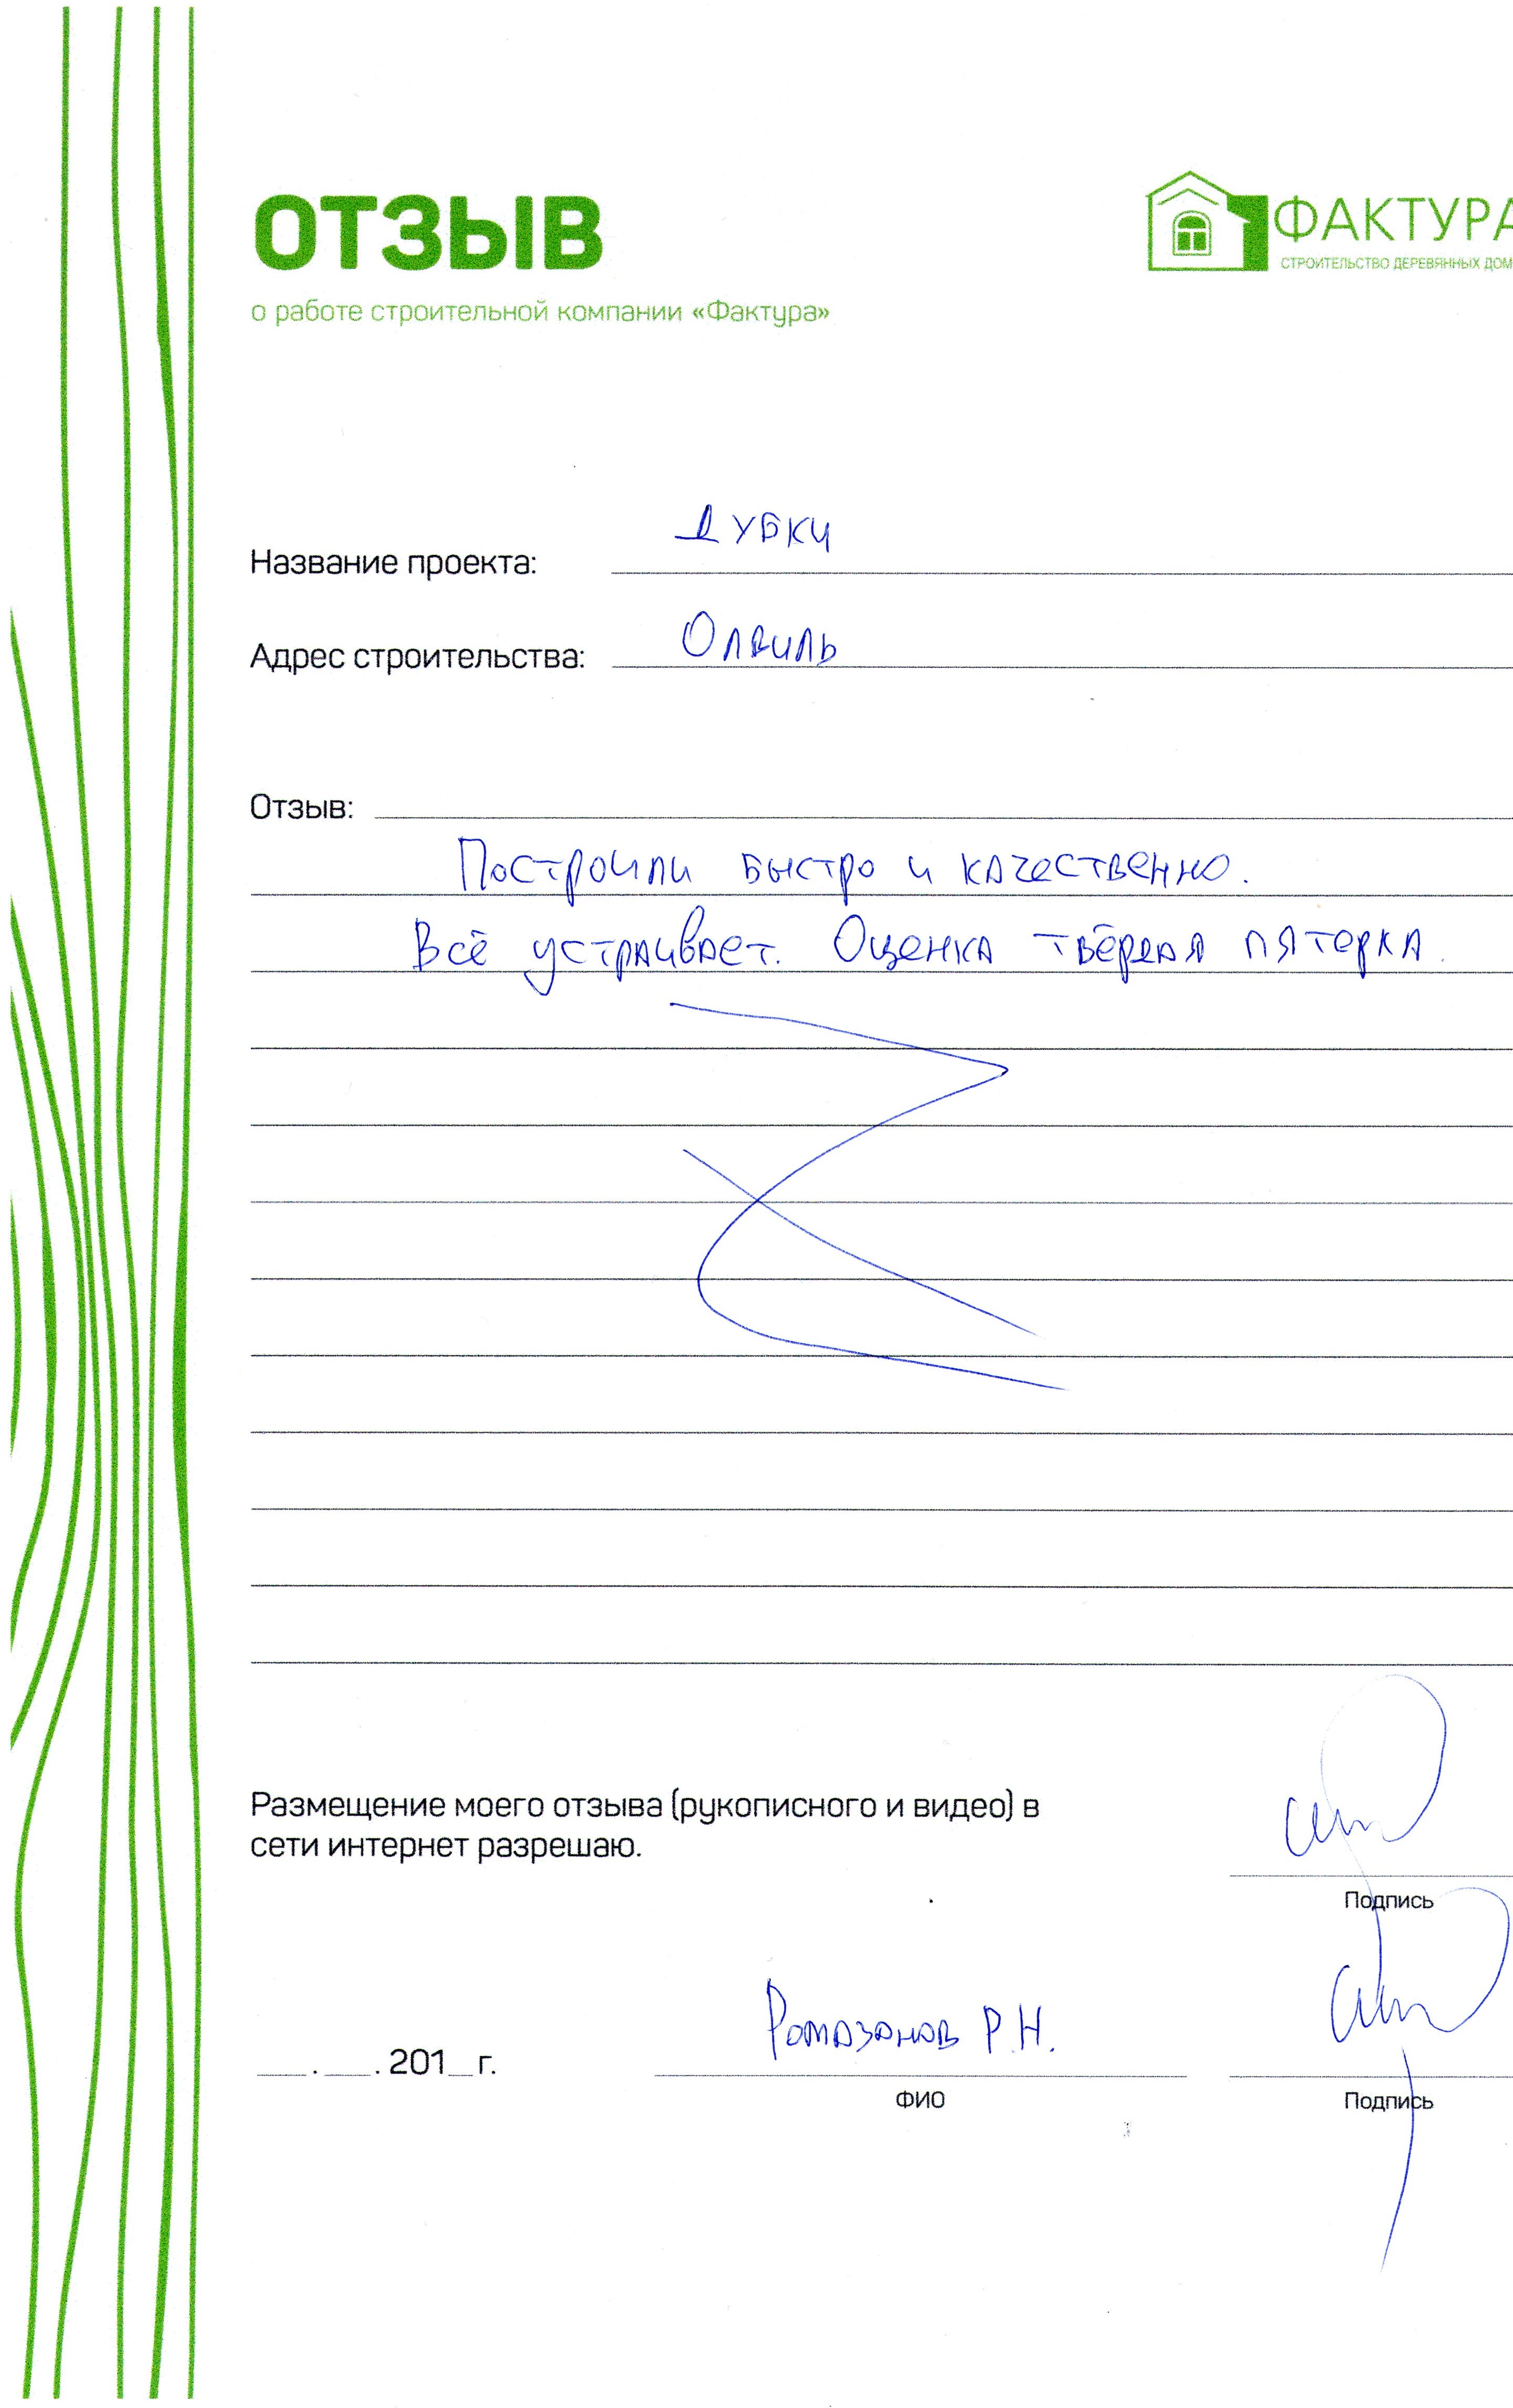 ОТЗЫВ
ФАКТУРА
СТРОИТЕЛЬСТВО ДЕРЕВЯННЫХ ДОМ
о работе строительной компании «Фактура»
Название проекта: Дубки
Адрес строительства: Олвиль
Отзыв:
Построили быстро и качественно.
Всё устраивает. Оценка твёрдая пятерка.
Размещение моего отзыва (рукописного и видео) в
сети интернет разрешаю.
Подпись
Ромазанов Р.Н.
__.__.201_г.
ФИО
Подпись